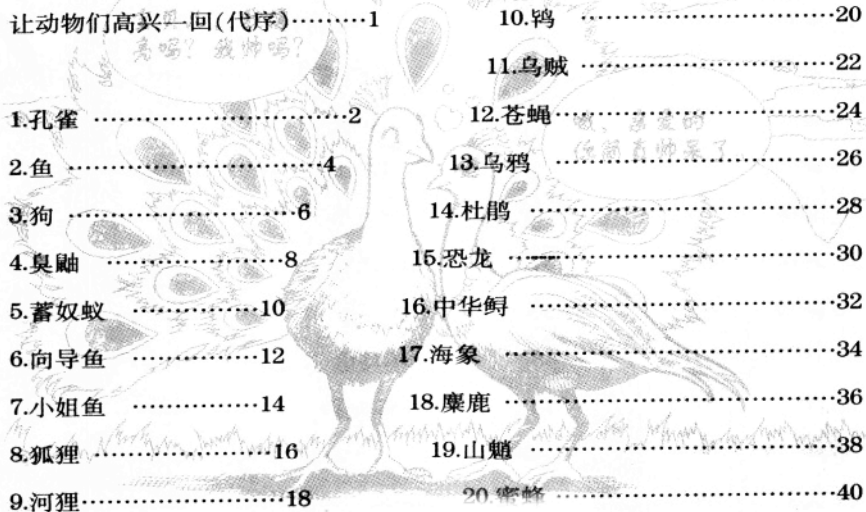 让动物们高兴一回(代序)……………1
1.孔雀 ……………………………2
2.鱼 ……………………………4
3.狗 …………………………6
4.臭鼬 …………………8
5.蓄奴蚁 ……………10
6.向导鱼 ……………12
7.小姐鱼 ……………14
8.狐狸 …………………16
9.河狸…………………18
10.鸨 …………………………20
11.乌贼 …………………………22
12.苍蝇 …………………………24
13.乌鸦 …………………………26
14.杜鹃 ……………………………28
15.恐龙 ……………………………30
16.中华鲟 …………………………32
17.海象 ……………………………34
18.麋鹿 ……………………………36
19.山魈 …………………………38
20.蜜蜂 …………………………40
亮吗? 我帅吗?